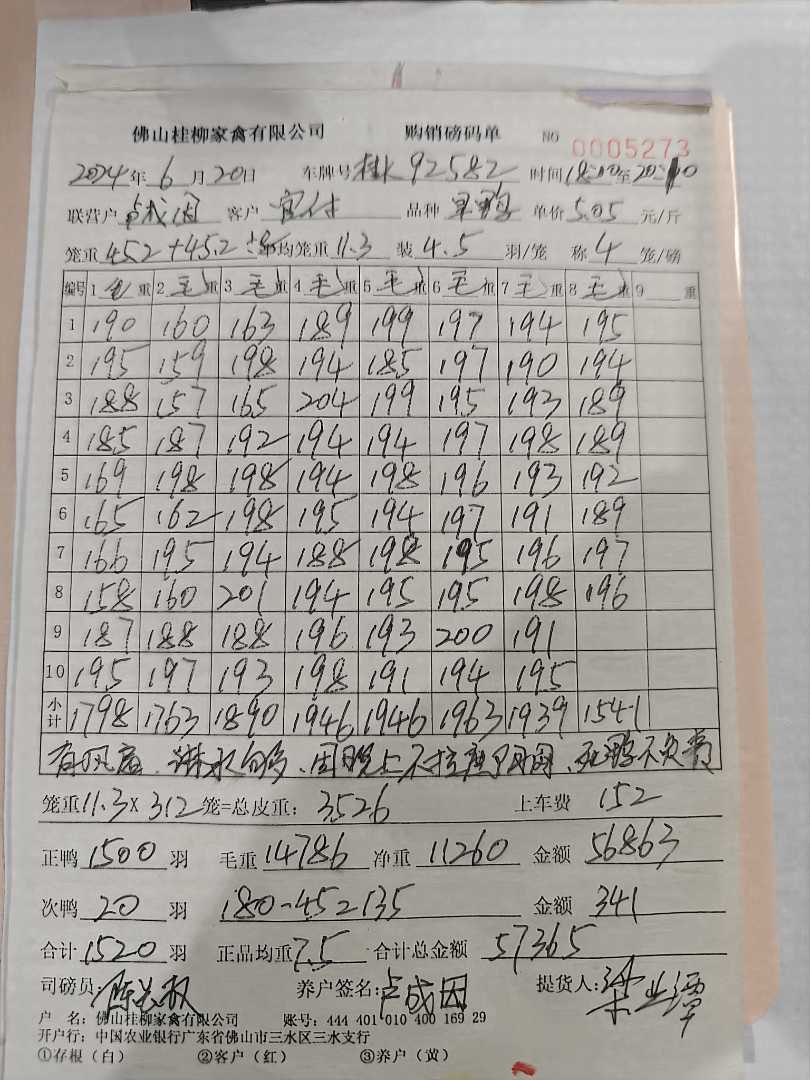 佛山桂柳家禽有限公司 购销磅码单 NO 0005273
2024年6月20日 车牌号桂K92582 时间18:10至20:10
联营户卢成因 客户 品种 单价5.05元/斤
笼重45.2+45.2 平均笼重11.3 装4.5羽/笼 称4笼/磅
编号 1毛重 2毛重 3毛重 4毛重 5毛重 6毛重 7毛重 8毛重 9 重
1 190 160 163 189 199 197 194 195
2 195 159 198 194 185 197 190 194
3 188 157 165 204 199 195 193 189
4 185 187 192 194 194 197 198 189
5 169 198 198 194 198 196 193 192
6 165 162 198 195 194 197 191 189
7 166 195 194 188 198 195 196 197
8 158 160 201 194 195 195 198 196
9 187 188 188 196 193 200 191
10 195 197 193 198 191 194 195
小计 1798 1763 1890 1946 1946 1963 1939 1541
有风 晚上不 死鸭不负责
笼重11.3×312笼=总皮重：3526 上车费 152
正鸭1500羽 毛重14786 净重11260 金额56863
次鸭20羽 180-45.2 135 金额341
合计1520羽 正品均重7.5 合计总金额57365
司磅员: 养户签名:卢成因 提货人:梁业谭
户 名：佛山桂柳家禽有限公司 账号：444 401 010 400 169 29
开户行：中国农业银行广东省佛山市三水区三水支行
①存根（白） ②客户（红） ③养户（黄）